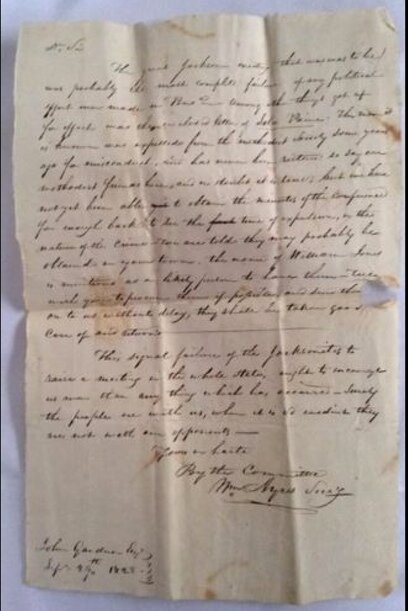 Dr Sir
The great Jackson meeting that was to be
was probably the most complete failure of any political
effort ever made in Among the things got up
for effect was the enclosed letter of The man it
is known was expelled from the methodist Society some years
ago for misconduct, and has never been restored so say our
methodist friends here, and no doubt it is true; but we have
not yet been able to obtain the minutes of the Conference
far enough back to see the time of expulsion, or the
nature of the Crime we are told they may probably be
obtained in your town. the name of William Jones
is mentioned as a likely person to have them we
wish you to procure them if possible, and send them
on to us without delay, they shall be taken good
Care of and returned
This signal failure of the Jacksonites to
raise a meeting in the whole state, ought to encourage
us more than any thing which has occurred surely
the people are with us, when it is so evident they
are not with our opponents
Yours in haste
By the Committee
Wm Ayres Secy
John Gardner Esqr
Sept 29th 1828